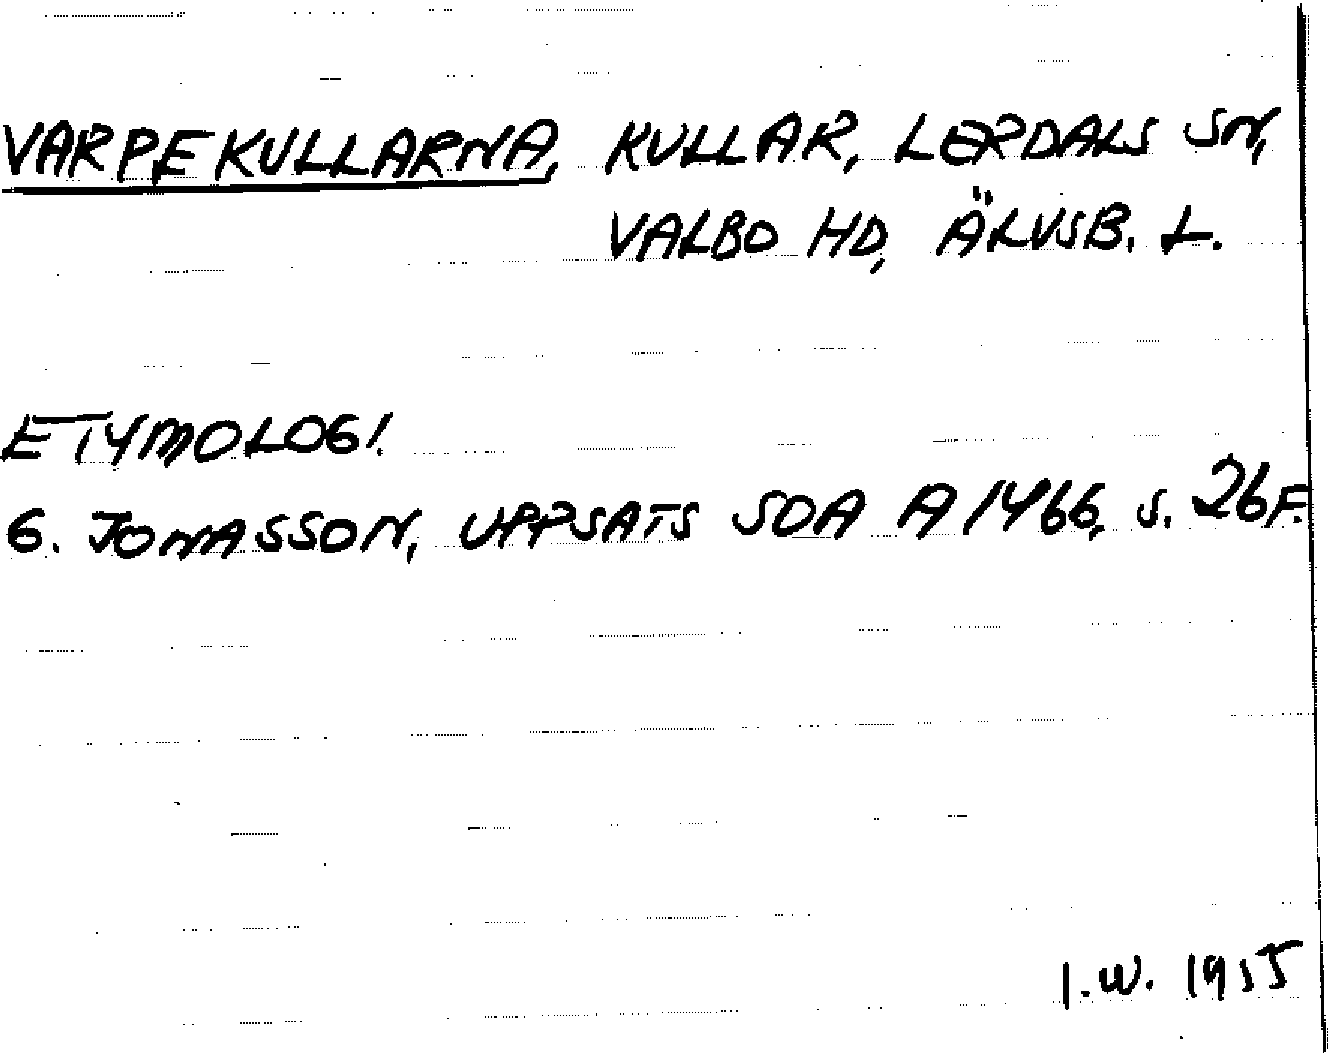 VARPEKULLARNA, KULLAR, LERDALS SN,
VALBO HD, ÄLVSB. L.
ETYMOLOGI.
G. JONASSON, UPPSATS SOA A 1466, S. 26 F.
I.W. 1955